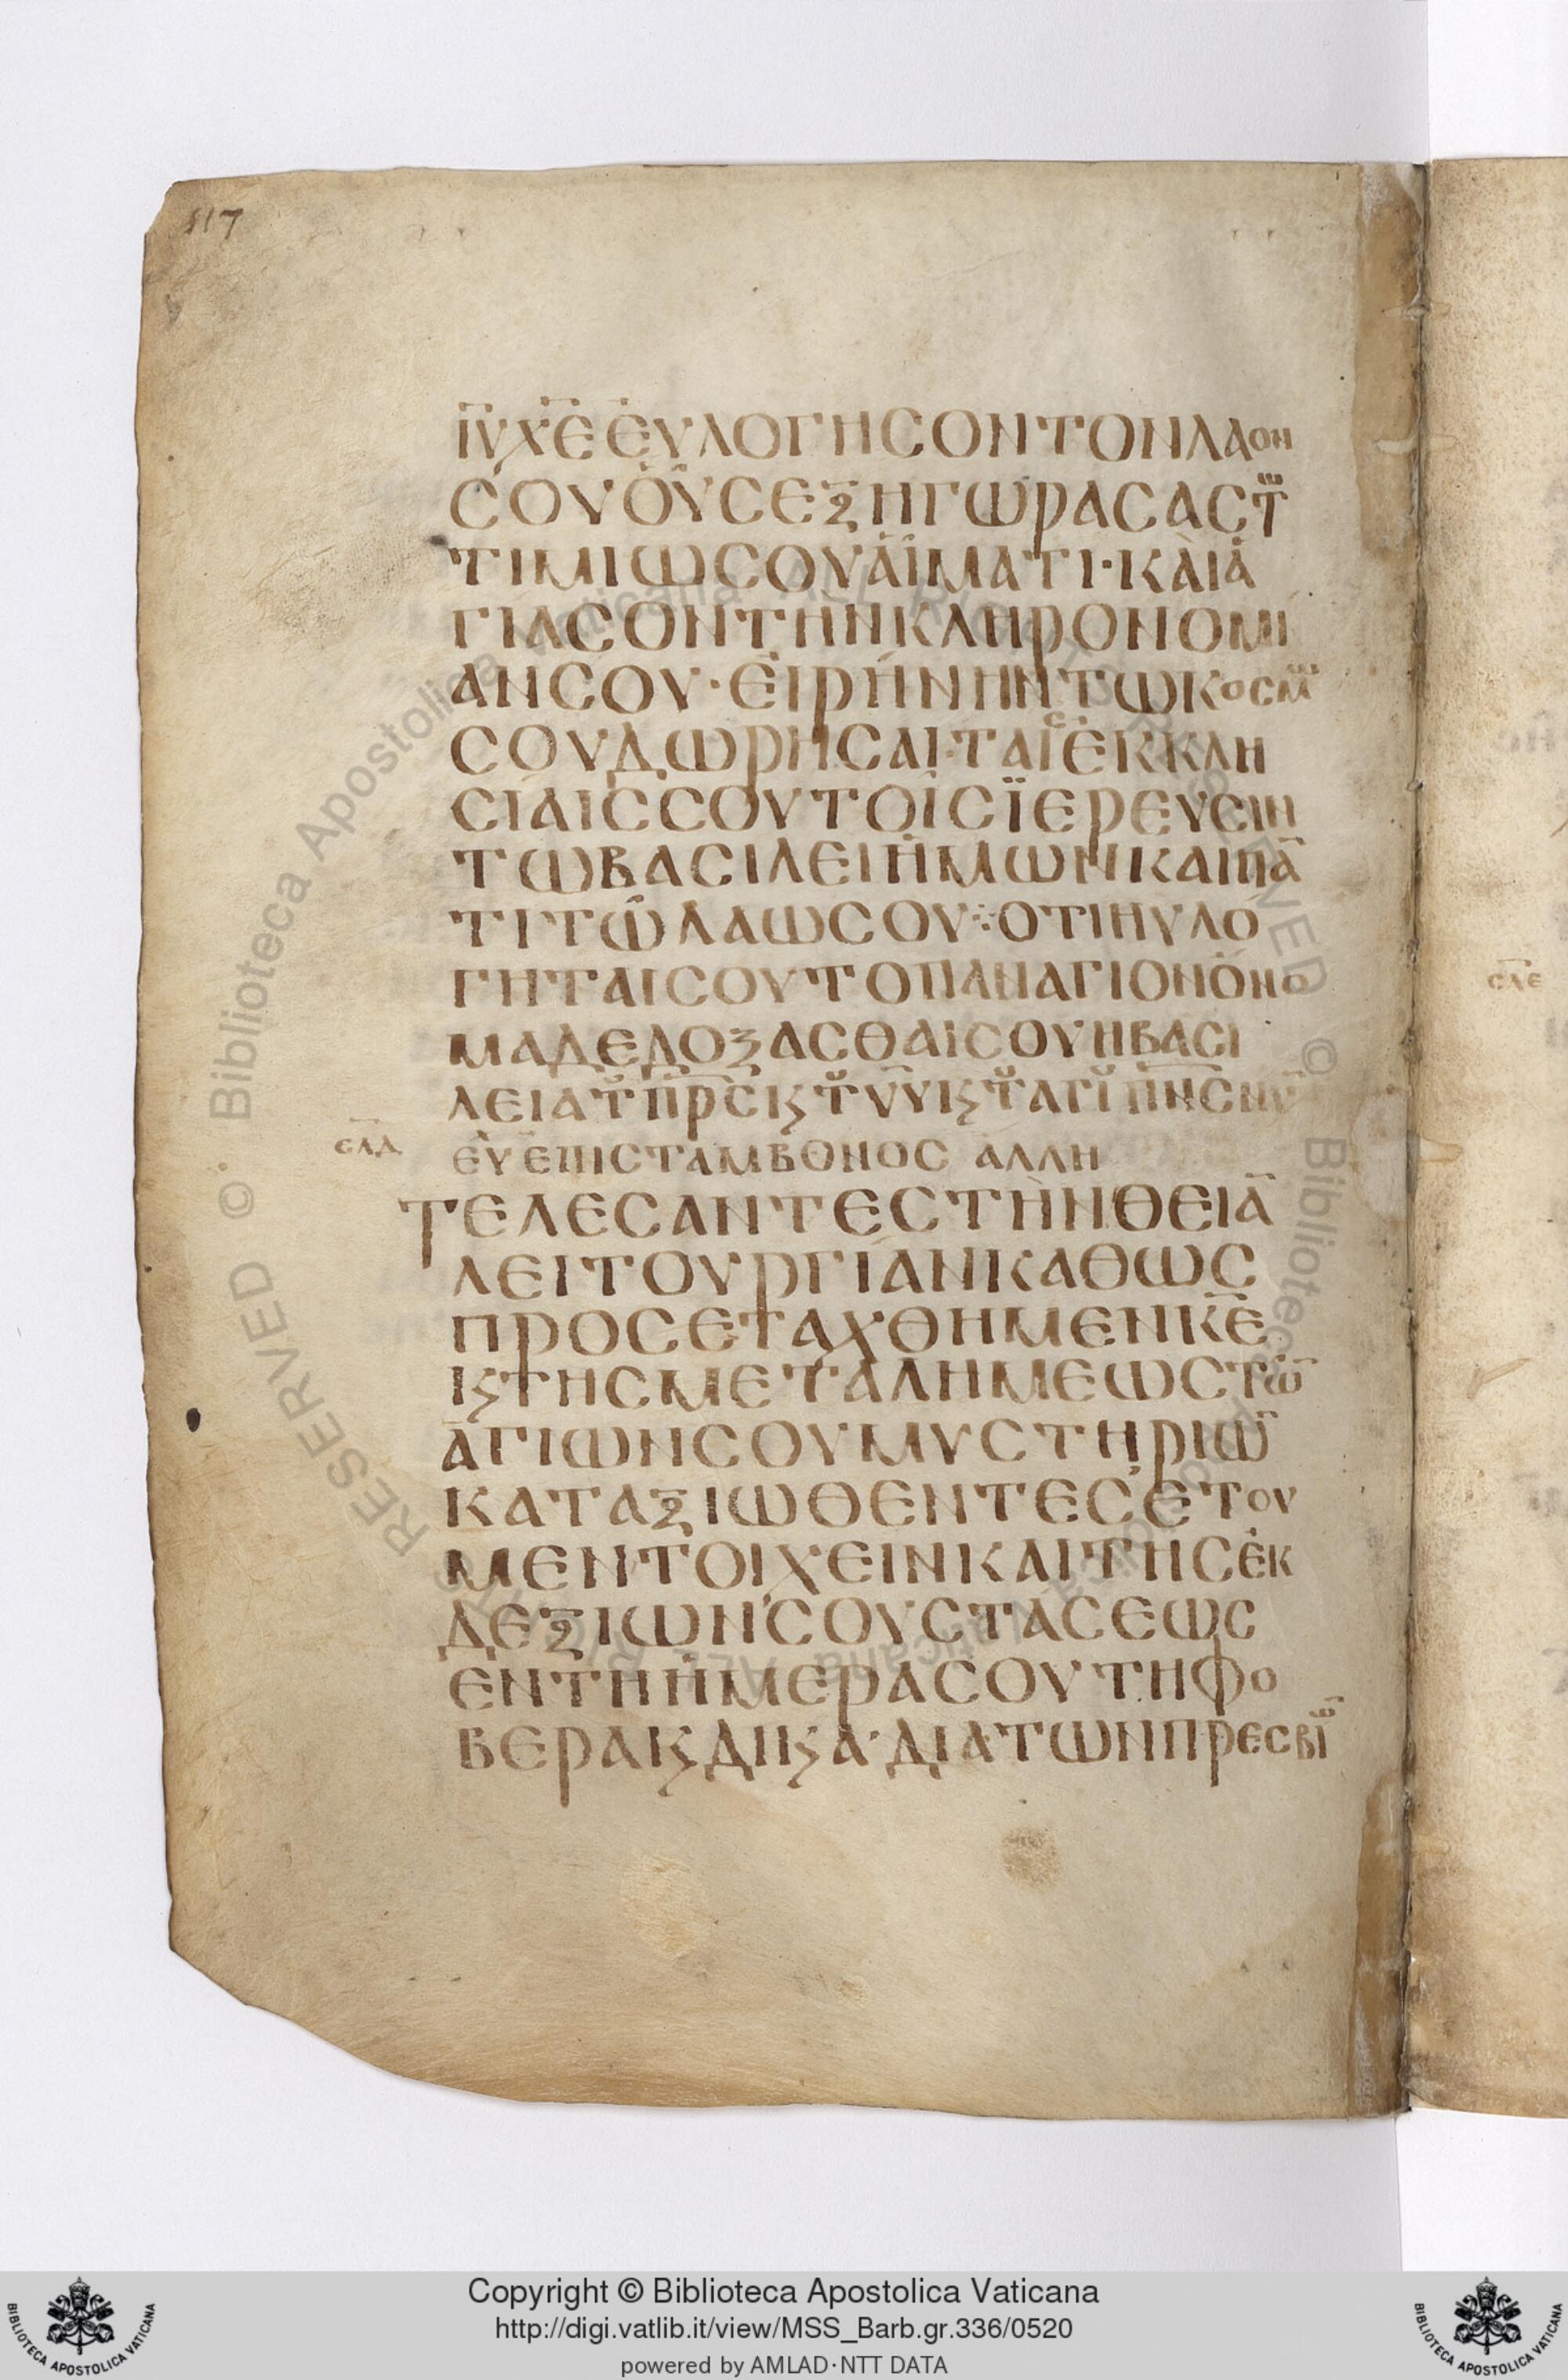 517
ΙΥ ΧΕ ΕΥΛΟΓΗСΟΝΤΟΝΛΑΟΝ
СΟΥΟΥСΕΞΗΓΩΡΑСΑСΤω
ΤΙΜΙΩСΟΥΑΙΜΑΤΙ·ΚΑΙΑ
ΓΙΑСΟΝΤΗΝΚΛΗΡΟΝΟΜΙ
ΑΝСΟΥ·ΕΙΡΗΝΗΝΤΩΚΟСΜω
СΟΥΔΩΡΗСΑΙ·ΤΑΙСΕΚΚΛΗ
СΙΑΙССΟΥΤΟΙСΪΕΡΕΥСΙΝ
ΤΩΒΑСΙΛΕΙΗΜΩΝΚΑΙΠᾹ
ΤΙΤΩΛΑΩСΟΥ⁘ΟΤΙΗΥΛΟ
ΓΗΤΑΙСΟΥΤΟΠΑΝΑΓΙΟΝΟΝΟ
ΜΑΔΕΔΟΞΑСΘΑΙСΟΥΗΒΑСΙ
ΛΕΙΑΤȢΠΡСϗΤȢΥΥϗΤȢΑΓΙȢΠΝС
ЄΛΔ ΕΥΕΠΙСΤΑΜΒΟΝΟС ΑΛΛΗ
ΤΕΛΕСΑΝΤΕСΤΗΝΘΕΙᾹ
ΛΕΙΤΟΥΡΓΙΑΝΚΑΘΩС
ΠΡΟСΕΤΑΧΘΗΜΕΝΚΕ
ϗΤΗСΜΕΤΑΛΗΜΕΩСΤΩ̄
ΑΓΙΩΝСΟΥΜΥСΤΗΡΙΩ̄
ΚΑΤΑΞΙΩΘΕΝΤΕСΕΤΟΥ
ΜΕΝΤΟΙΧΕΙΝΚΑΙΤΗСΕΚ
ΔΕΞΙΩΝСΟΥСΤΑСΕΩС
ΕΝΤΗΗΜΕΡΑСΟΥΤΗΦΟ
ΒΕΡΑϗΔΙΚΑ·ΔΙΑΤΩΝΠΡΕСΒΙω̄
ϹΛΕ
Copyright © Biblioteca Apostolica Vaticana
http://digi.vatlib.it/view/MSS_Barb.gr.336/0520
powered by AMLAD·NTT DATA
BIBLIOTECA APOSTOLICA VATICANA
BIBLIOTECA APOSTOLICA VATICANA